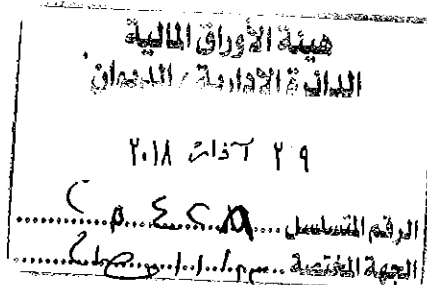 هيئة الأوراق المالية
الدائرة الادارية / الديوان
٢٩ آذار ٢٠١٨
الرقم المتسلسل
الجهة المختصة